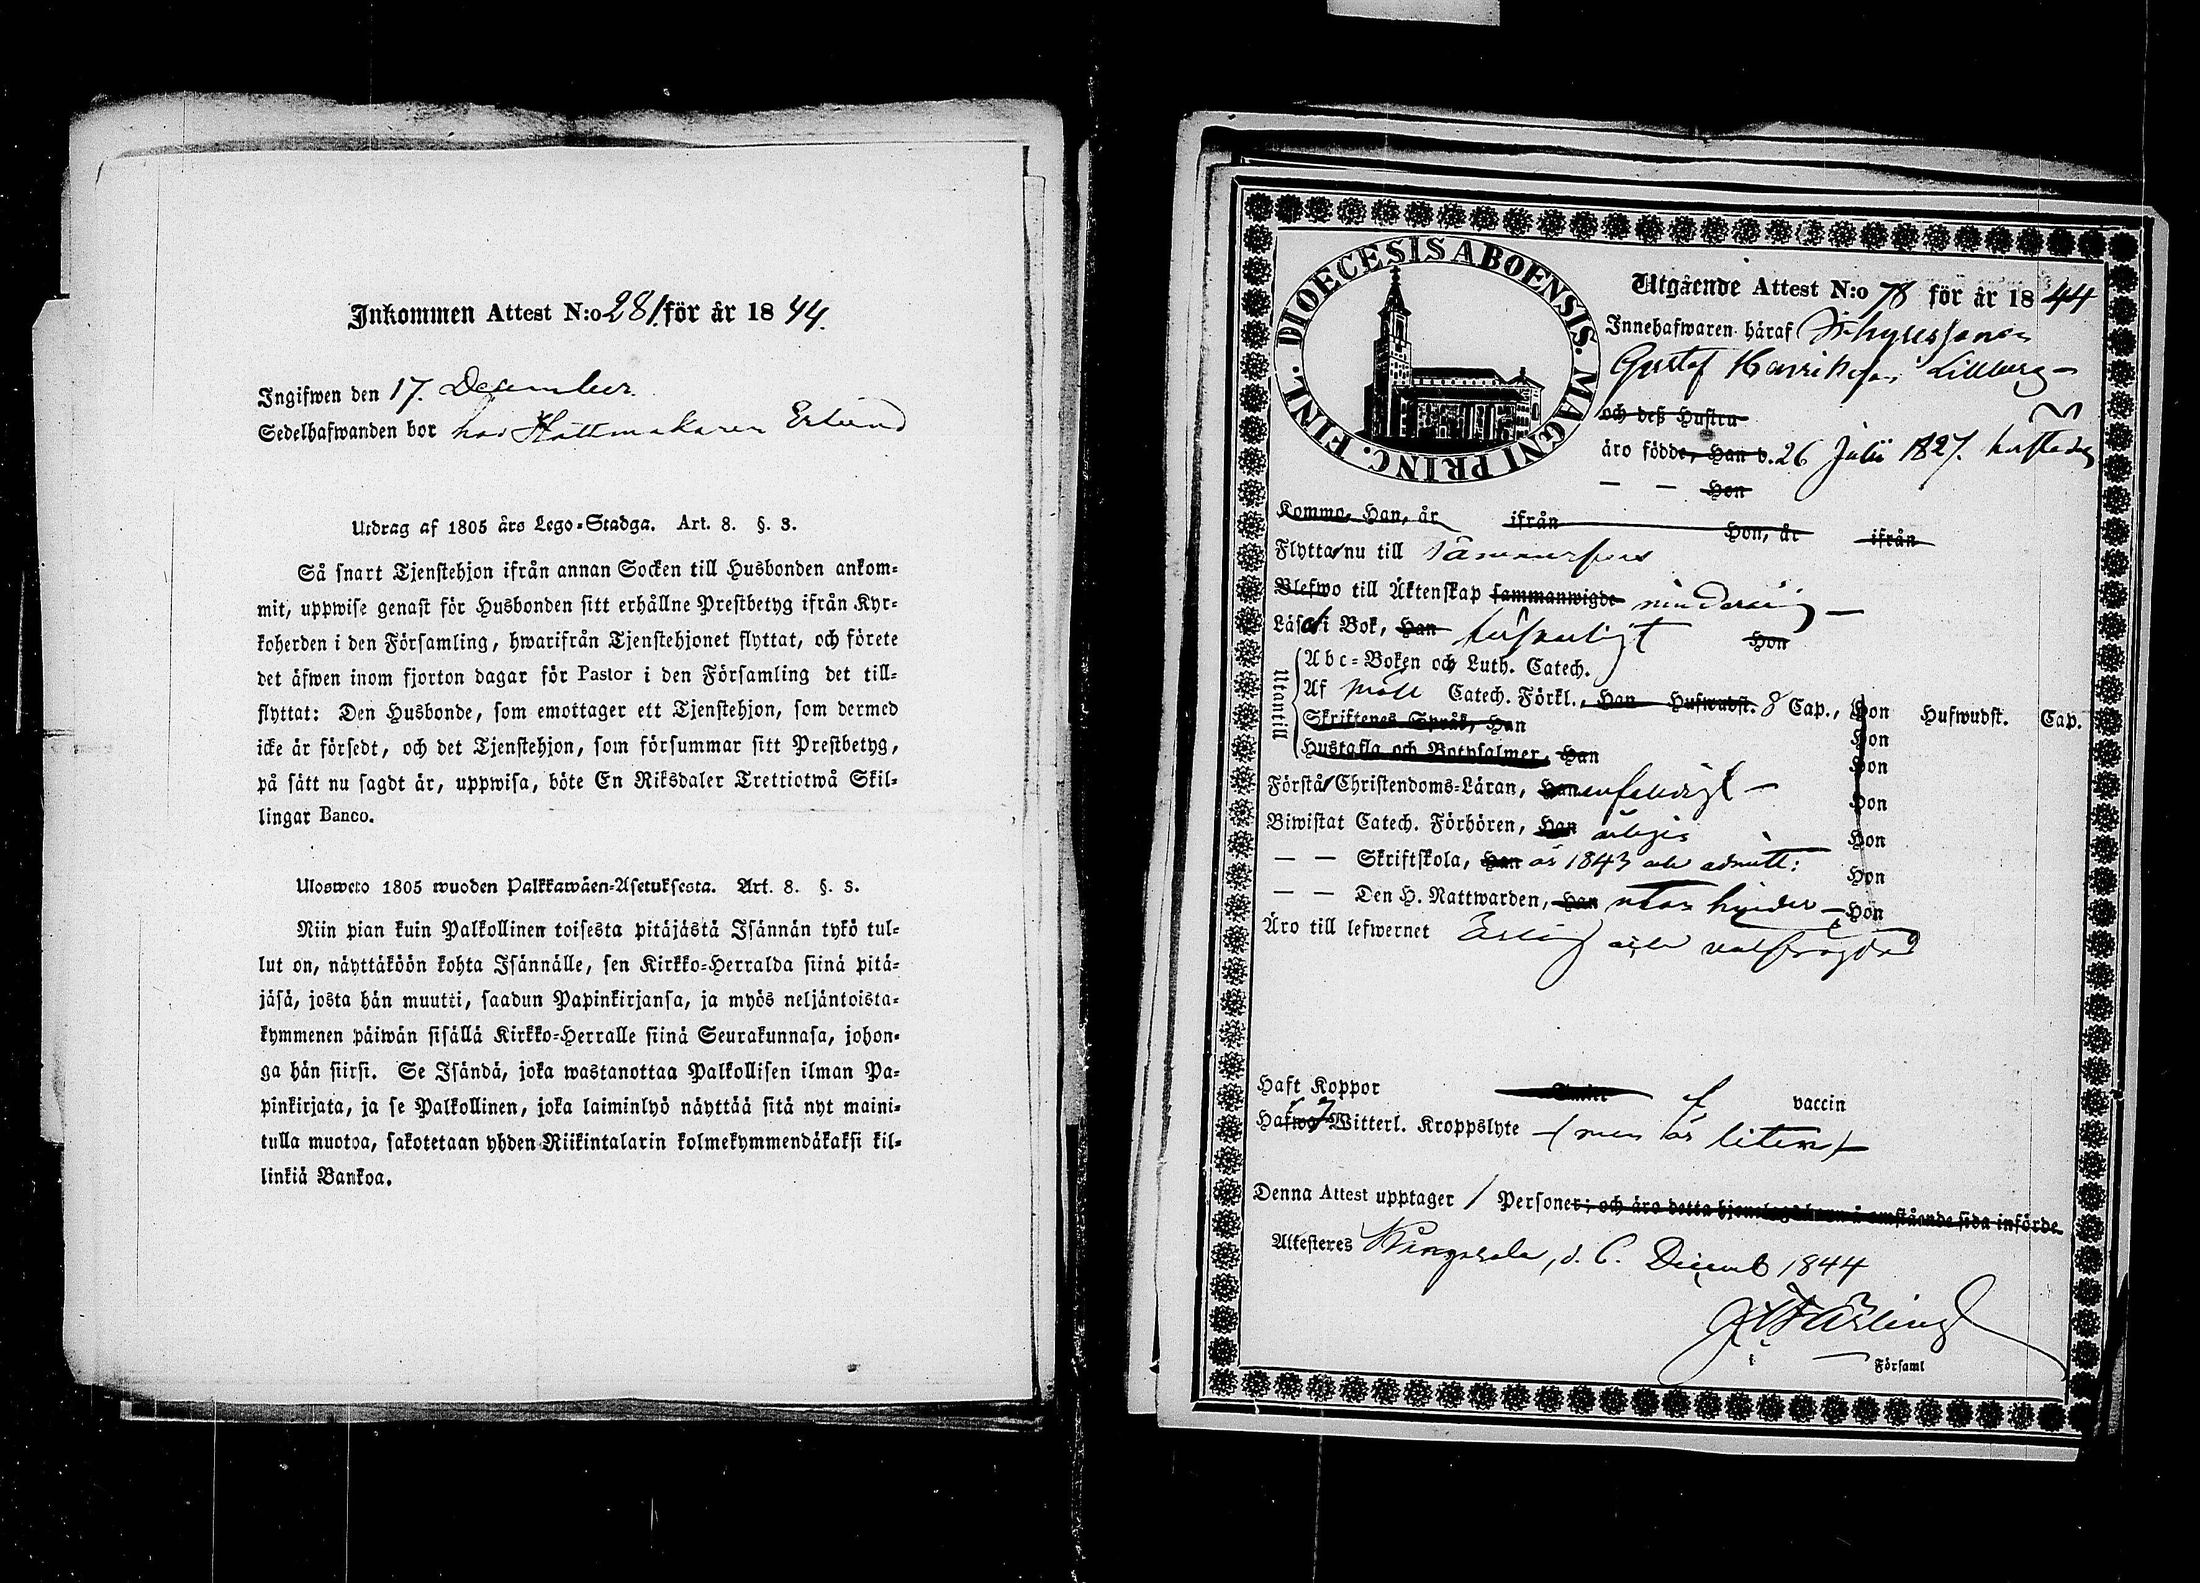 Inkommen Attest N:o 281. för år 1844.
Ingifwen den 17. December.
Sedelhafwanden bor hos Hattmakaren Erlund
Utdrag af 1805 års Lego-Stadga. Art. 8. §. 3.
Så snart Tjenstehjon ifrån annan Socken till Husbonden ankom-
mit, uppwise genast för Husbonden sitt erhållne Prestbetyg ifrån Kyr-
koherden i den Församling, hwarifrån Tjenstehjonet flyttat, och förete
det äfwen inom fjorton dagar för Pastor i den Församling det till-
flyttat: Den Husbonde, som emottager ett Tjenstehjon, som dermed
icke är försedt, och det Tjenstehjon, som försummar sitt Prestbetyg,
på sätt nu sagdt är, uppwisa, böte En Riksdaler Trettiotwå Skil-
lingar Banco.
Ulosweto 1805 wuoden Palkkawäen-Asetuksesta. Art. 8. §. 3.
Niin pian kuin Palkollinen toisesta pitäjästä Isännän tykö tul-
lut on, näyttäköön kohta Isännälle, sen Kirkko-Herralda siinä pitä-
jäsä, josta hän muutti, saadun Papinkirjansa, ja myös neljäntoista-
kymmenen päiwän sisällä Kirkko-Herralle siinä Seurakunnasa, johon-
ga hän siirsi. Se Isändä, joka wastanottaa Palkollisen ilman Pa-
pinkirjata, ja se Palkollinen, joka laiminlyö näyttää sitä nyt maini-
tulla muotoa, sakotetaan yhden Riikintalarin kolmekymmendäkaksi kil-
linkiä Bankoa.
DIOECESIS ABOENSIS. MAGNI PRINC. FINL.
Utgående Attest N:o 78 för år 1844
Innehafwaren häraf
Gustaf Henriksson Lillberg
och deß Hustru
äro födde, Han d. 26 Julii 1827.
— — Hon
Komma, Han, år ifrån Hon, år ifrån
Flytta nu till Tammerfors
Blefwo till Äktenskap sammanwigde minderårig —
Läsa i Bok, Han försvarligt Hon
Utantill
Abc-Boken och Luth. Catech.
Af Möll Catech. Förkl., Han Hufwudst. 8 Cap., Hon Hufwudst. Cap.
Skriftenes Språk, Han Hon
Hustafla och Botpsalmer, Han Hon
Förstå Christendoms-Läran, Han enfaldigt — Hon
Biwistat Catech. Förhören, Han årligen Hon
— — Skriftskola, Han år 1843 och admitt: Hon
— — Den H. Nattwarden, Han utan hinder — Hon
Äro till lefwernet Ärlig och välfrägdad
Haft Koppor vaccin
Hafwa Witterl. Kroppslyte (men är liten)
Denna Attest upptager 1 Personer; och äro detta hjonelag å omstående sida införde.
Attesteres Kangasala, d. 6. Decemb 1844
i Församl